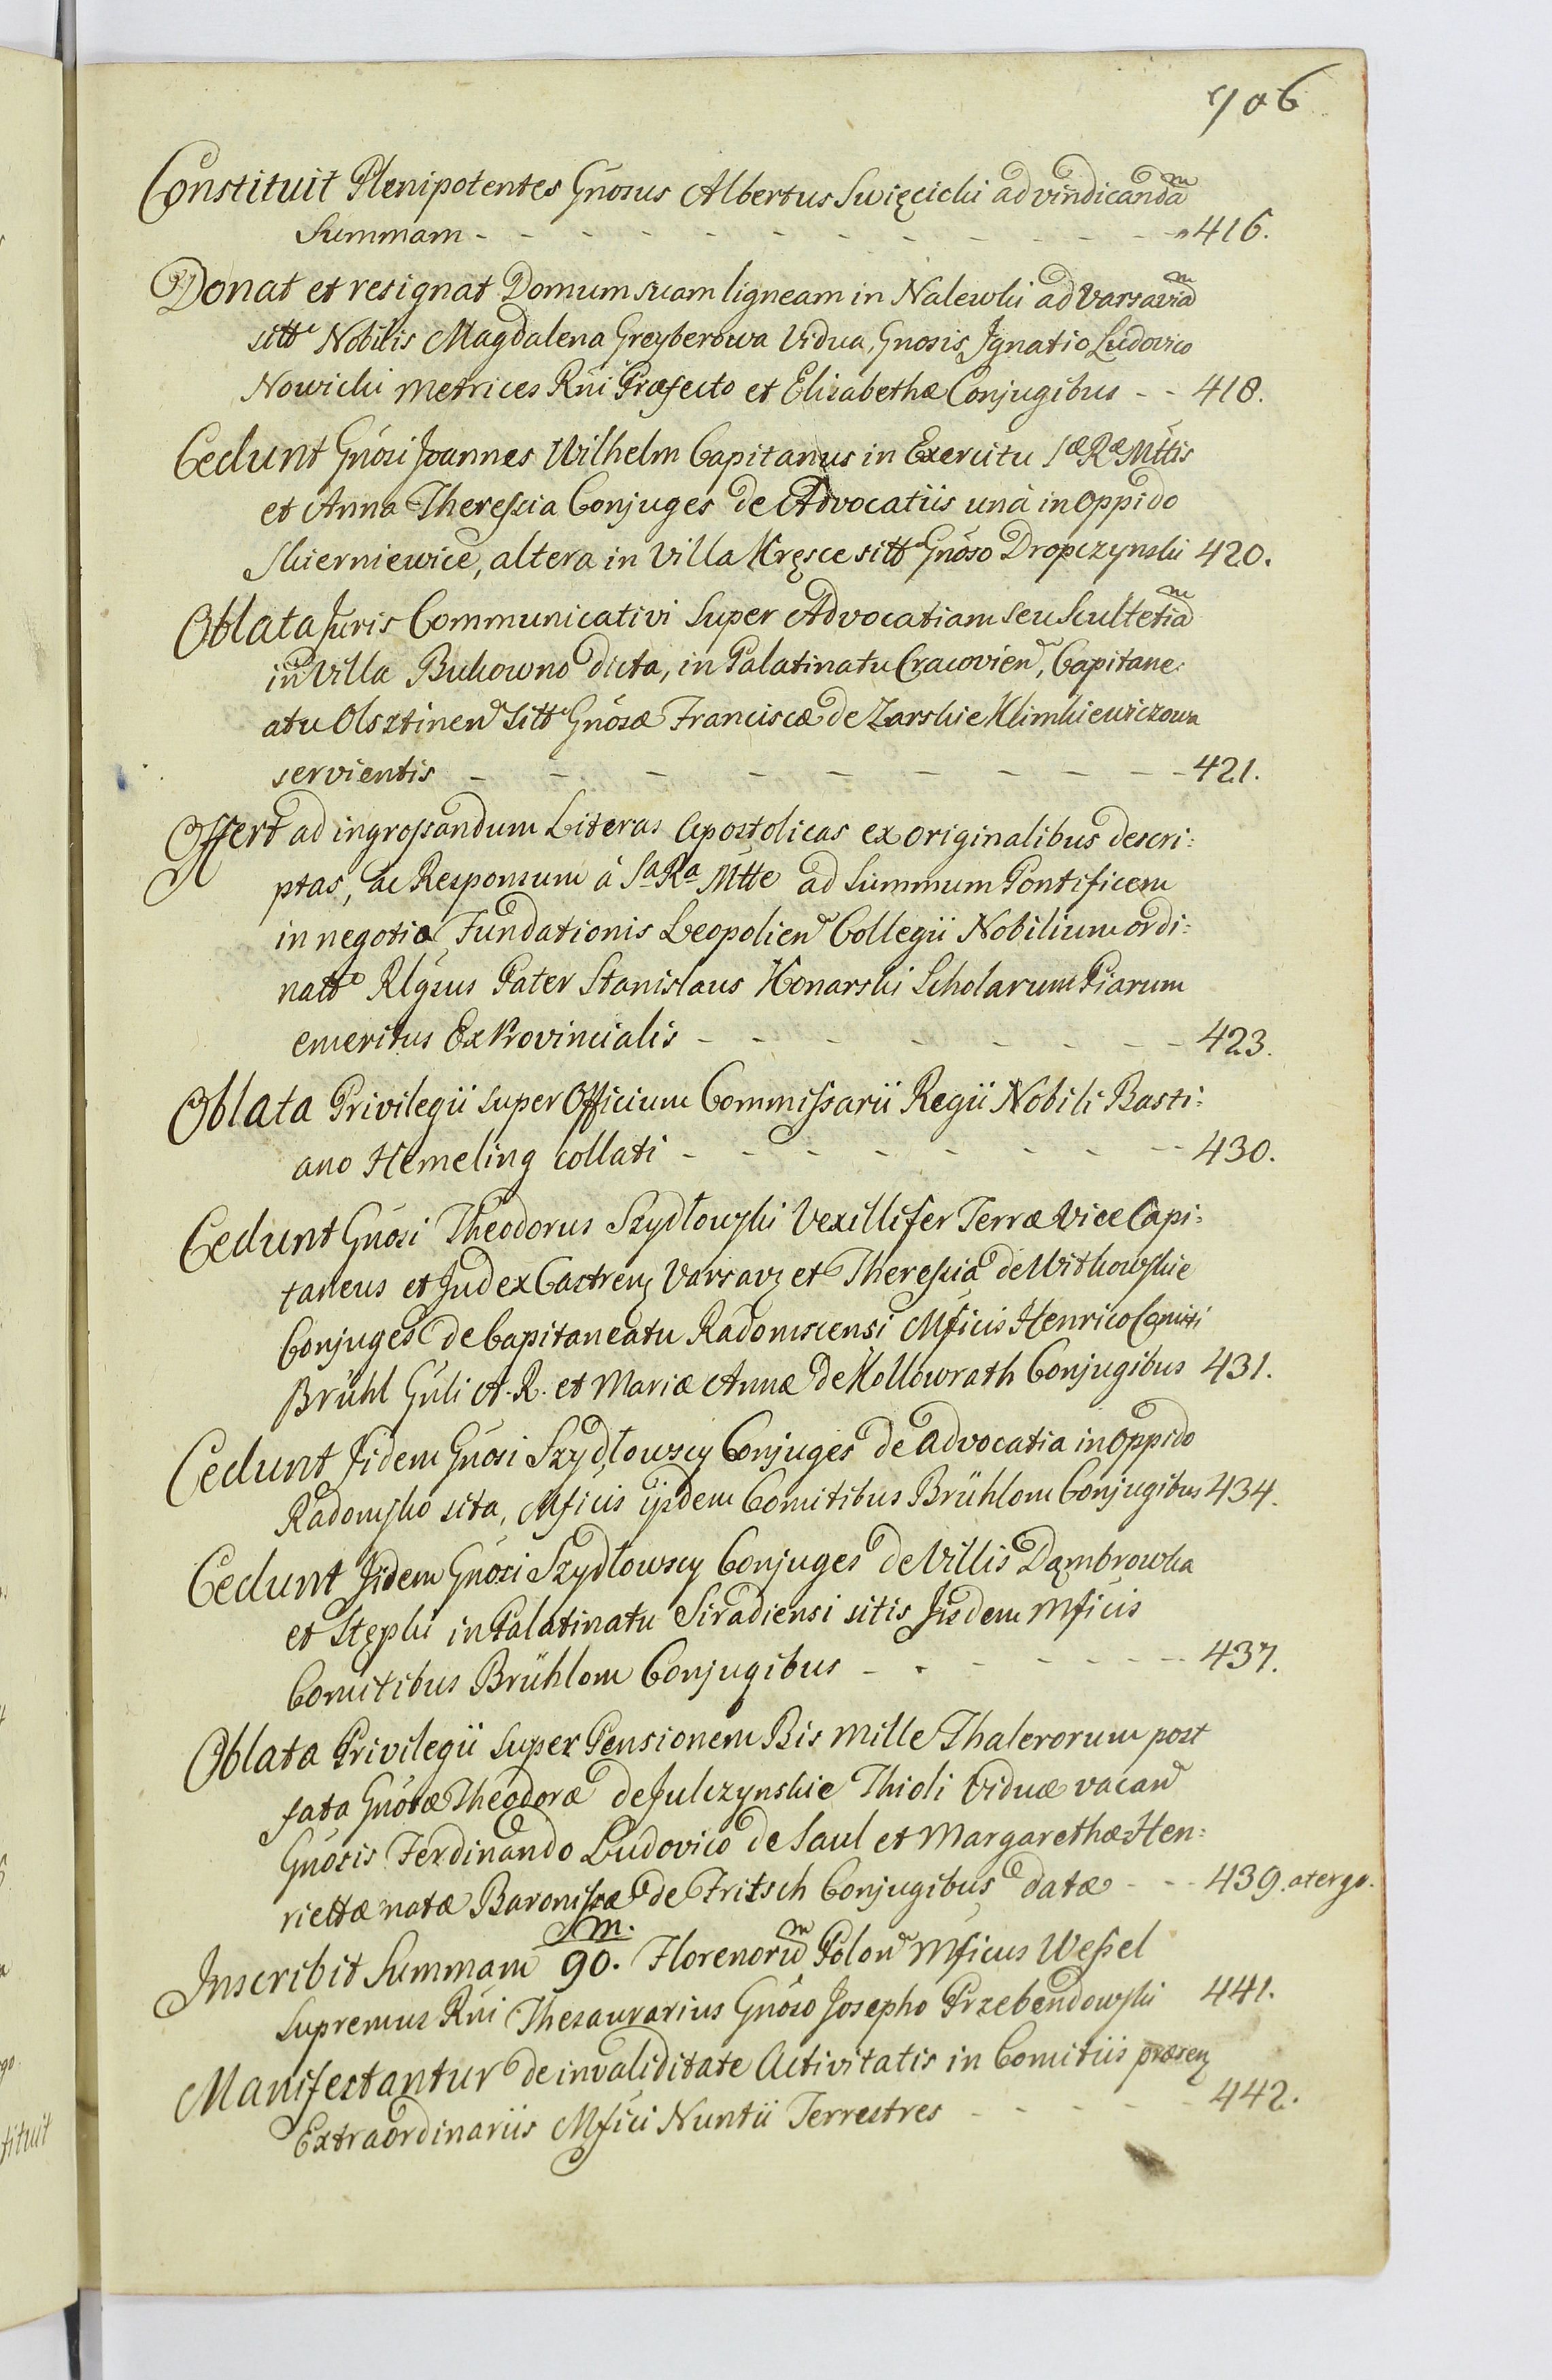 706
Constituit Plenipotentes Gnosus Albertus Swięcicki ad vindicandam
Summam - - - - - - - - - - - - 416.
Donat et resignat Domum suam ligneam in Nalewki ad Varsaviam
sitt Nobilis Magdalena Greyberowa Vidua, Gnosis Ignatio Ludovico
Nowicki Metrices Rni Præfecto et Elisabethæ Conjugibus - - 418.
Cedunt Gnosi Joannes Wilhelm Capitanus in Exercitu SæRæMttis
et Anna Theressia Conjuges de Advocatiis unâ in Oppido
Skierniewice, altera in Villa Kręsce sitt Gnoso Dropczynski 420.
Oblata Juris Communicativi Super Advocatiam seu Scultetiam
in Villa Bukowno dicta, in Palatinatu Cracovien, Capitane:
atu Olsztinen sitt Gnosæ Franciscæ de Zarskie Klimkiewiczowa
servientis - - - - - - - - - 421.
Offert ad ingrossandum Literas Apostolicas ex originalibus descri:
ptas, ac Responsum à Sa Ra Mtte ad Summum Pontificem
in negotio Fundationis Leopolien Collegii Nobilium ordi:
natt Rlgsus Pater Stanislaus Konarski Scholarum Piarum
emeritus ExProvincialis - - - - - - - - 423.
Oblata Privilegii super Officium Commissarii Regii Nobili Basti:
ano Hemeling collati - - - - - - - - 430.
Cedunt Gnosi Theodorus Szydłowski Vexillifer Terræ Vice Capi:
taneus et Judex Castrenẛ Varsavẛ et Theressia de Witkowskie
Conjuges de Capitaneatu Radomscensi Mficis Henrico Comiti
Brühl Gnli A. R. et Mariæ Annæ de Kollowrath Conjugibus 431.
Cedunt Jidem Gnosi Szydłowscy Conjuges de Advocatia in Oppido
Radomsko sita, Mficis ijsdem Comitibus Brühlom Conjugibus 434.
Cedunt Jidem Gnosi Szydłowscy Conjuges de Villis Dąmbrowka
et Stępki in Palatinatu Siradiensi sitis Jisdem Mficis
Comitibus Brühlom Conjugibus - - - - - - - 437.
Oblata Privilegii super Pensionem Bis mille Thalerorum post
fata Gnosæ Theodoræ de Julczynskie Thioli Viduæ vacan
Gnosis Ferdinando Ludovico de Saul et Margarethæ Hen:
riettæ natæ Baronissæ de Fritsch Conjugibus datæ - - - 439. a tergo.
Inscribit Summam 90.m. Florenorum Polon Mficus Wessel
Supremus Rni Thesaurarius Gnoso Josepho Przebendowski 441.
Manifestantur de invaliditate Activitatis in Comitiis præsenẛ
Extraordinariis Mfici Nuntii Terrestres - - - - - 442.